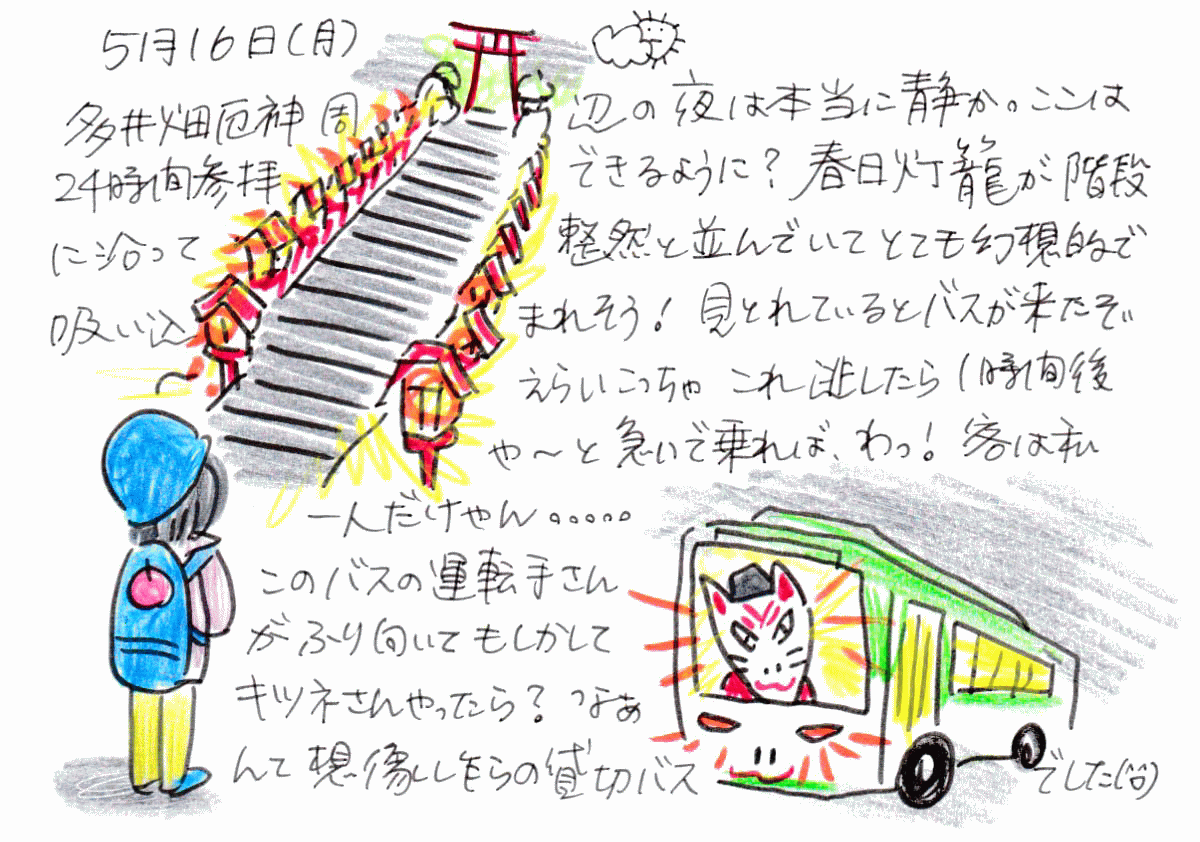 5月16日(月)
多井畑厄神周辺の夜は本当に静か。ここは
24時間参拝できるように?春日灯籠が階段
に沿って整然と並んでいてとても幻想的で
吸い込まれそう!見とれているとバスが来たぞぃ
えらいこっちゃ これ逃したら1時間後
や〜と急いで乗れば、わっ!客は私
一人だけやん。。。。。
このバスの運転手さん
がふり向いてもしかして
キツネさんやったら?なぁ
んて想像しながらの貸切バス
でした(^o^)